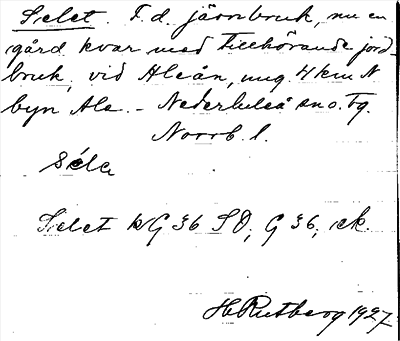 Selet. F. d. järnbruk, nu en
gård kvar med tillhörande jord-
bruk, vid Aleån, ung. 4 km N.
byn Ale. - Nederluleå sn o. tg.
Norrb. l.
Séla
Selet kG 36 SO, G 36, ek.
H Rutberg 1927